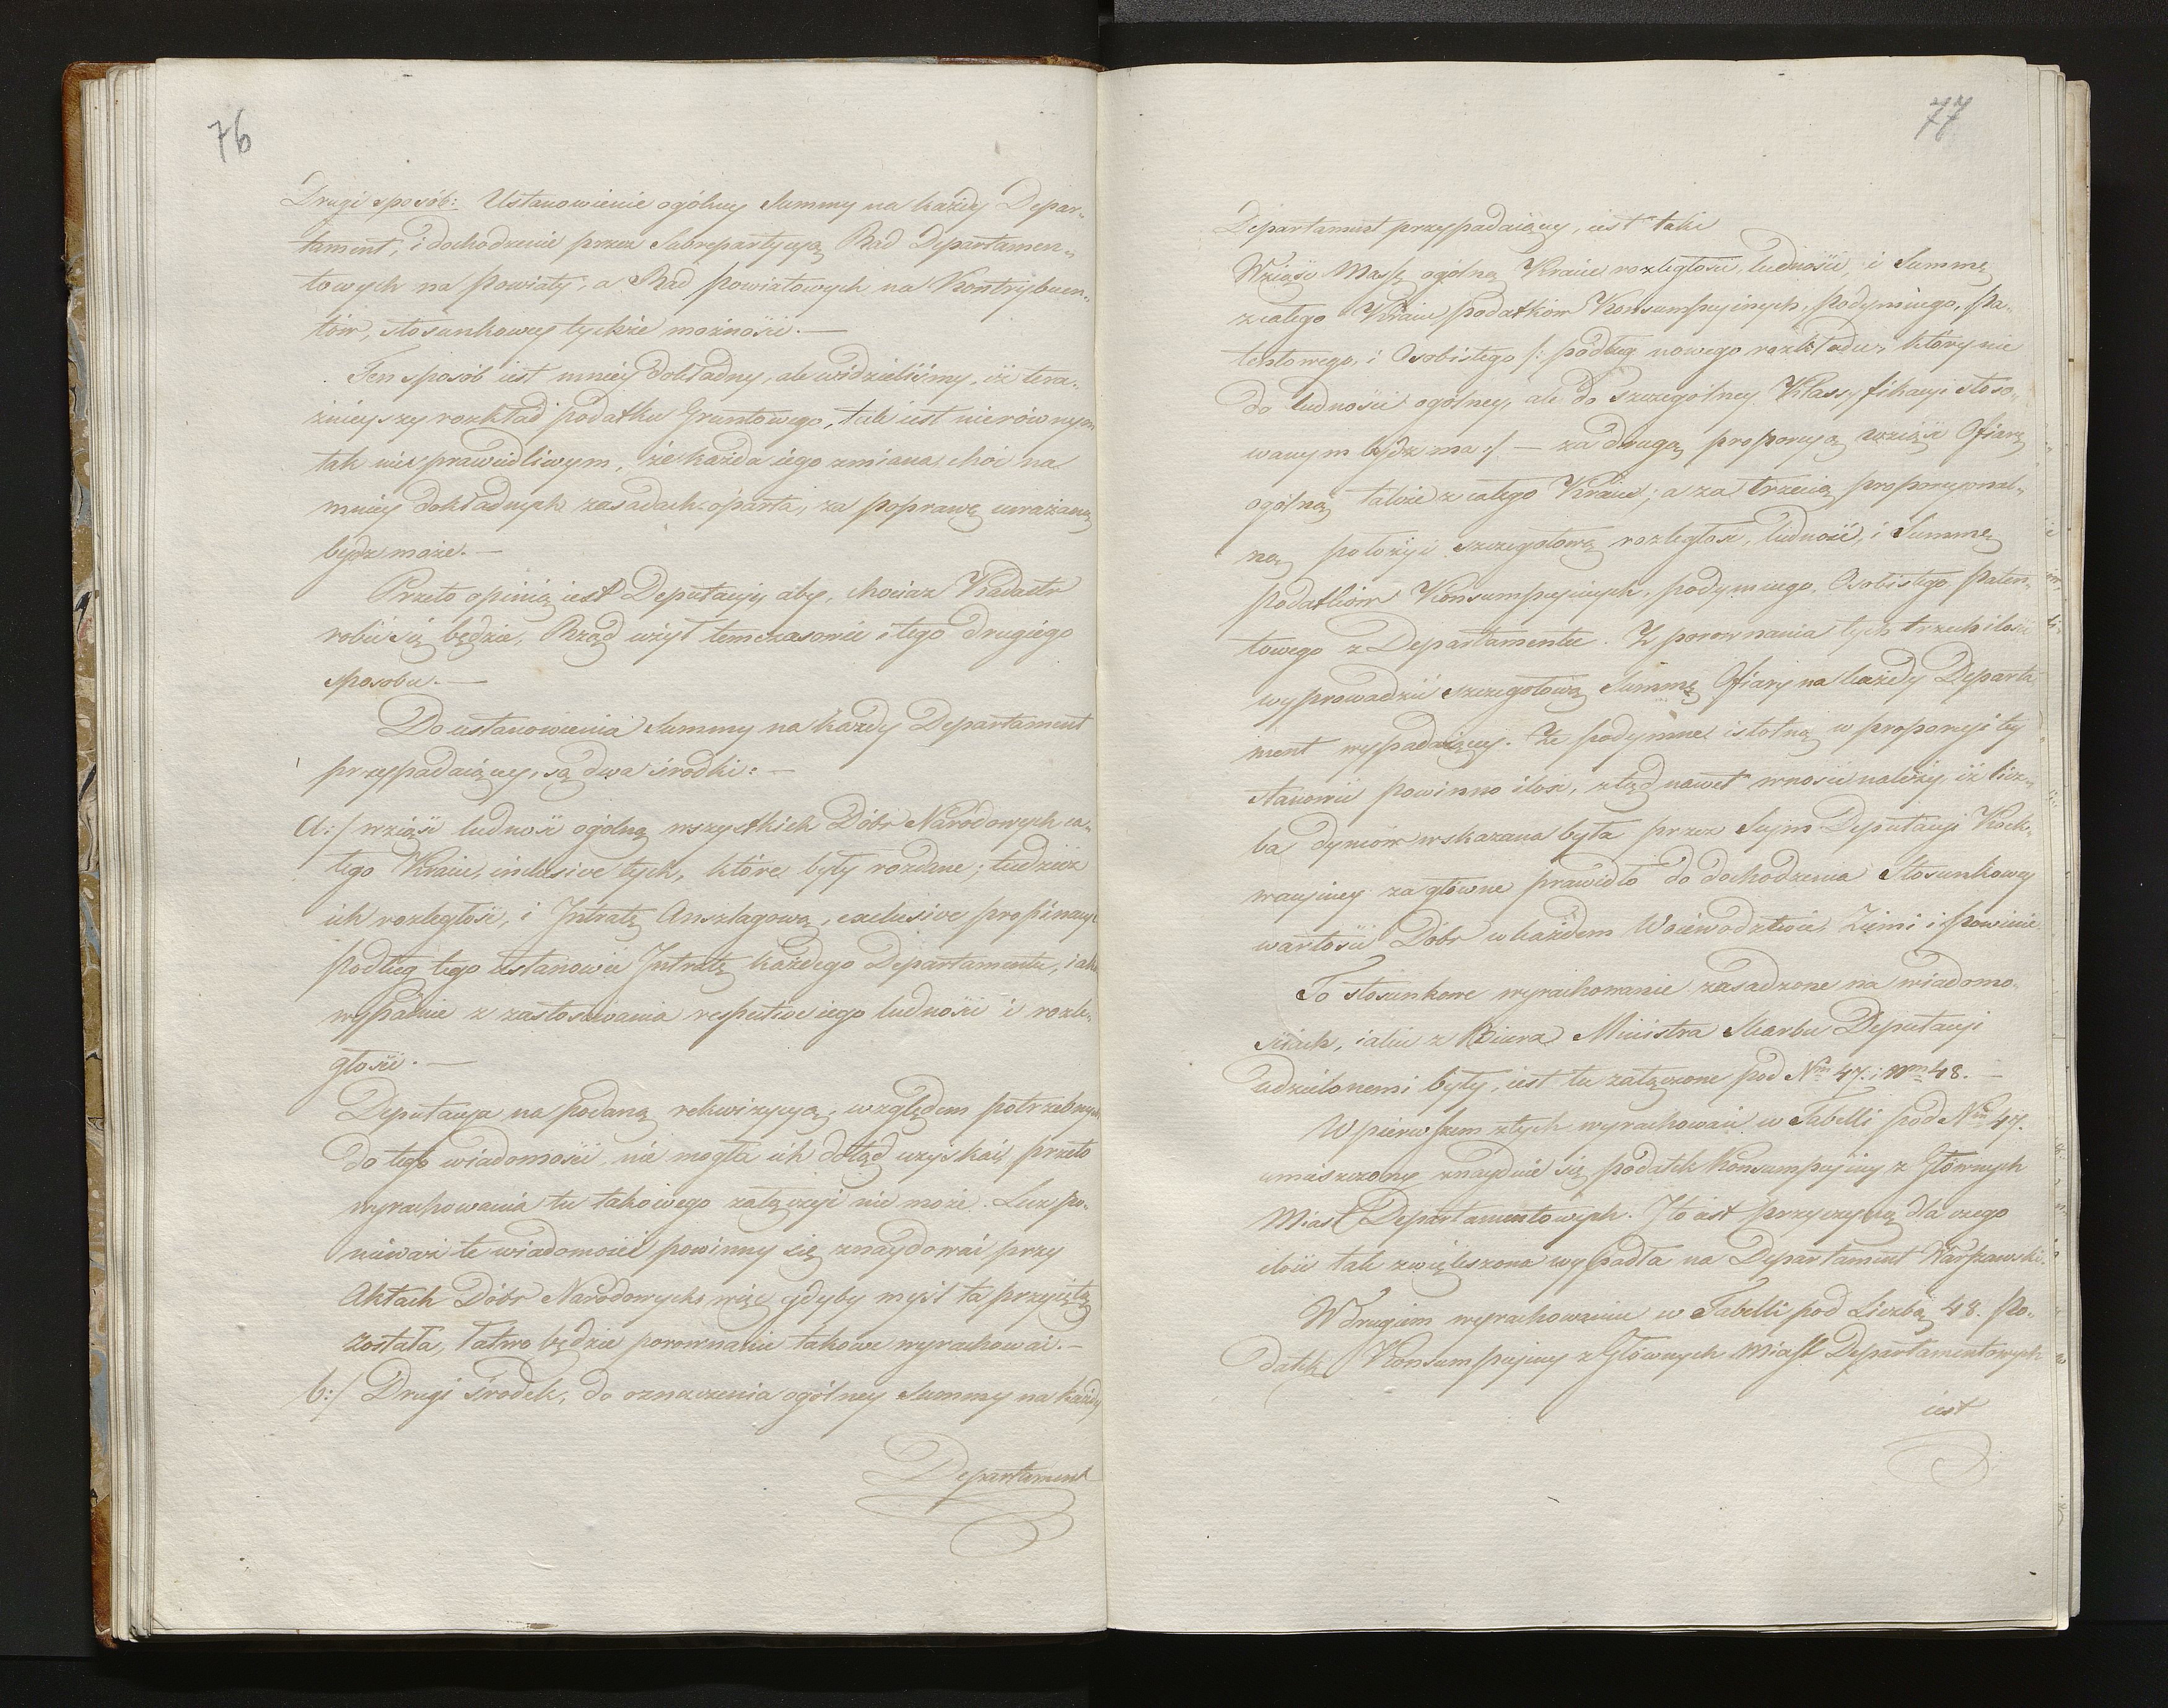 76
Drugi sposób: Ustanowienie ogólney Summy na każdy Depar„
tament, i dochodzenie przez Subrepartycyą Rad Departamen„
towych na Powiaty, a Rad powiatowych na Kontrybuen„
tów, stosunkowey tychże możności. —
Ten sposób iest mniéy dokładny, ale widzieliśmy, iż tera„
źnieyszy rozkład podatku Gruntowego, tak iest nierównym
tak niesprawiedliwym, że każda iego zmiana, choć na
mniéy dokładnych zasadach oparta, za poprawę uważaną
bydz może. —
Przeto opinią iest Deputacyi, aby, chociaż Kadastr
robić się będzie, Rząd użył temczasowie i tego drugiego
sposobu. —
Do ustanowienia Summy na każdy Departament
przypadaiącey, są dwa środki: —
a:/ wziąść ludność ogólną wszystkich Dóbr Narodowych ca„
łego Kraiu, inclusive tych, które były rozdane; tudzież
ich rozległość, i Intratę Anszlagową, exclusive propinacyi
podług tego ustanowić Intratę każdego Departamentu, iaka
wypadnie z zastosowania respective iego ludności i rozle„
głości. —
Deputacya na podaną rekwizycyą, względem potrzebnych
do tego wiadomości, nie mogła ich dotąd uzyskać, przeto
wyrachowania tu takowego załączyć nie może. Lecz po„
nieważ te wiadomości powinny się znaydować przy
Aktach Dóbr Narodowych, więc gdyby myśl ta przyiętą
została, łatwo będzie porównanie takowe wyrachować. —
b:/ Drugi środek, do oznaczenia ogólney Summy na każdy
Departament
77
Departament przypadaiącey, iest taki
Wziąść Massę ogólną Kraiu rozległości, ludności, i Summę
z całego Kraiu podatków Konsumpcyinych, podymnego, Pa„
tentowego, i Osobistego /: podług nowego rozkładu, który nie
do ludności ogólney, ale do szczególney Klassyfikacyi stoso„
wanym bydz ma :/ — za drugą proporcyą wziąść Ofiarę
ogólną także z całego Kraiu; a za trzecią proporcyonal„
ną położyć szczegółową rozległość, ludność, i Summę
podatków Konsumpcyinych, podymnego, Osobistego, Paten„
towego z Departamentu. Z porównania tych trzech ilości
wyprowadzić szczegółową Summę Ofiary na każdy Departa
ment wypadaiącey. Że podymne istotną w proporcyi tey
stanowić powinno ilość, ztąd nawet wnosić należy, iż licz„
ba dymów wskazana była przez Seym Deputacyi Koek„
wacyiney za główne prawidło do dochodzenia Stosunkowey
wartości Dóbr w każdem Woiewodztwie, Ziemi i Powiecie.
To stosunkowe wyrachowanie zasadzone na wiadomo„
ściach, iakie z Biura Ministra Skarbu Deputacyi
udzielonemi były, iest tu załączone pod Nm 47. i Nm 48. —
W pierwszem z tych wyrachowań w Tabelli pod Nm 47.
umieszczony znayduie się podatek Konsumpcyiny z Głównych
Miast Departamentowych. I to iest przyczyną dla czego
ilość tak zwiększona wypadła na Departament Warszawski.
W drugiem wyrachowaniu w Tabelli pod Liczbą 48. Po„
datek Konsumpcyiny z Głównych Miast Departamentowych
iest